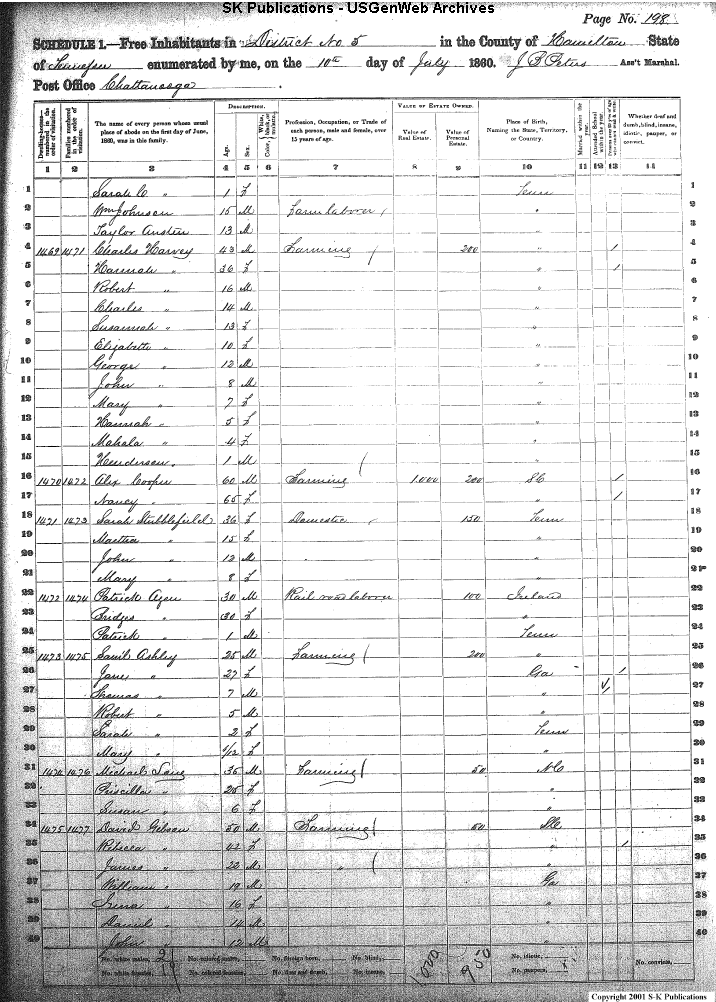 SK Publications - USGenWeb Archives
Page No. 198
SCHEDULE 1.—Free Inhabitants in District No 5 in the County of Hamilton State
of Tennessee enumerated by me, on the 10th day of July 1860. J B Peters Ass't Marshal.
Post Office Chattanooga
Dwelling-houses—numbered in the order of visitation.
Families numbered in the order of visitation.
The name of every person whose usual place of abode on the first day of June, 1860, was in this family.
DESCRIPTION.
Age.
Sex.
Color, White, black, or mulatto.
Profession, Occupation, or Trade of each person, male and female, over 15 years of age.
VALUE OF ESTATE OWNED.
Value of Real Estate.
Value of Personal Estate.
Place of Birth, Naming the State, Territory, or Country.
Married within the year.
Attended School within the year.
Whether deaf and dumb, blind, insane, idiotic, pauper, or convict.
1 2 3 4 5 6 7 8 9 10 11 12 13 14
1 Sarah C " 1 F Tenn 1
2 Wm Johnson 15 M Farm laborer " 2
3 Taylor Austen 13 M " 3
4 1469 1471 Charles Harvey 43 M Farming 200 " / 4
5 Hannah " 36 F " / 5
6 Robert " 16 M " 6
7 Charles " 14 M " 7
8 Susannah " 13 F " 8
9 Elizabeth " 10 F " 9
10 George " 12 M " 10
11 John " 8 M " 11
12 Mary " 7 F " 12
13 Hannah " 5 F " 13
14 Mahala " 4 F " 14
15 Henderson " 1 M " 15
16 1470 1472 Alex Cooper 60 M Farming 1,000 200 SC / 16
17 Nancy " 65 F " / 17
18 1471 1473 Sarah Stubblefield 36 F Domestic 150 Tenn 18
19 Martha " 15 F " 19
20 John " 12 M " 20
21 Mary " 8 F " 21
22 1472 1474 Patrick 30 M Rail road laborer 100 Ireland 22
23 Bridges " 30 F " 23
24 Patrick " 1 M Tenn 24
25 1473 1475 Saml Ashley 25 M Farming 200 " 25
26 Jane " 27 F Ga / 26
27 Thomas " 7 M " 27
28 Robert " 5 M " 28
29 Sarah " 2 F Tenn 29
30 Mary " /12 F " 30
31 1474 1476 Michael Lang 35 M Farming 50 NC 31
32 Priscilla " 25 F " 32
33 Susan " 6 F " 33
34 1475 1477 David Gibson 50 M Farming 50 34
35 Rebecca " 42 F " / 35
36 James " 22 M " " 36
37 William " 19 M Ga 37
38 " 16 F " 38
39 Daniel " 14 M " 39
40 John " 12 M " 40
No. white males, No. colored males, No. foreign born, No. blind, No. idiotic,
No. white females, 19 No. colored females, No. deaf and dumb, No. insane, 1000 950 No. paupers, No. convicts,
Copyright 2001 S-K Publications